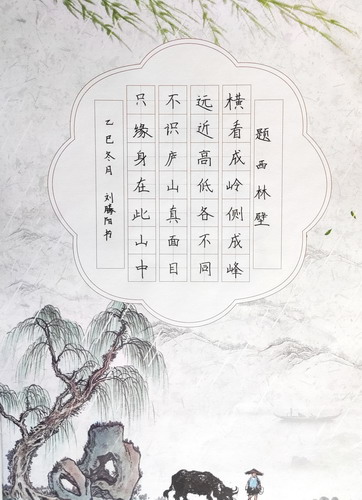 题西林壁
横看成岭侧成峰
远近高低各不同
不识庐山真面目
只缘身在此山中
乙巳冬月 刘腾阳书